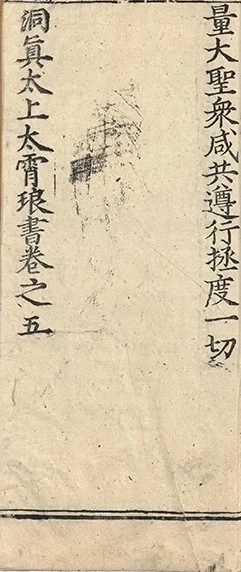 量大聖衆咸共遵行拯度一切
洞眞太上太霄琅書卷之五